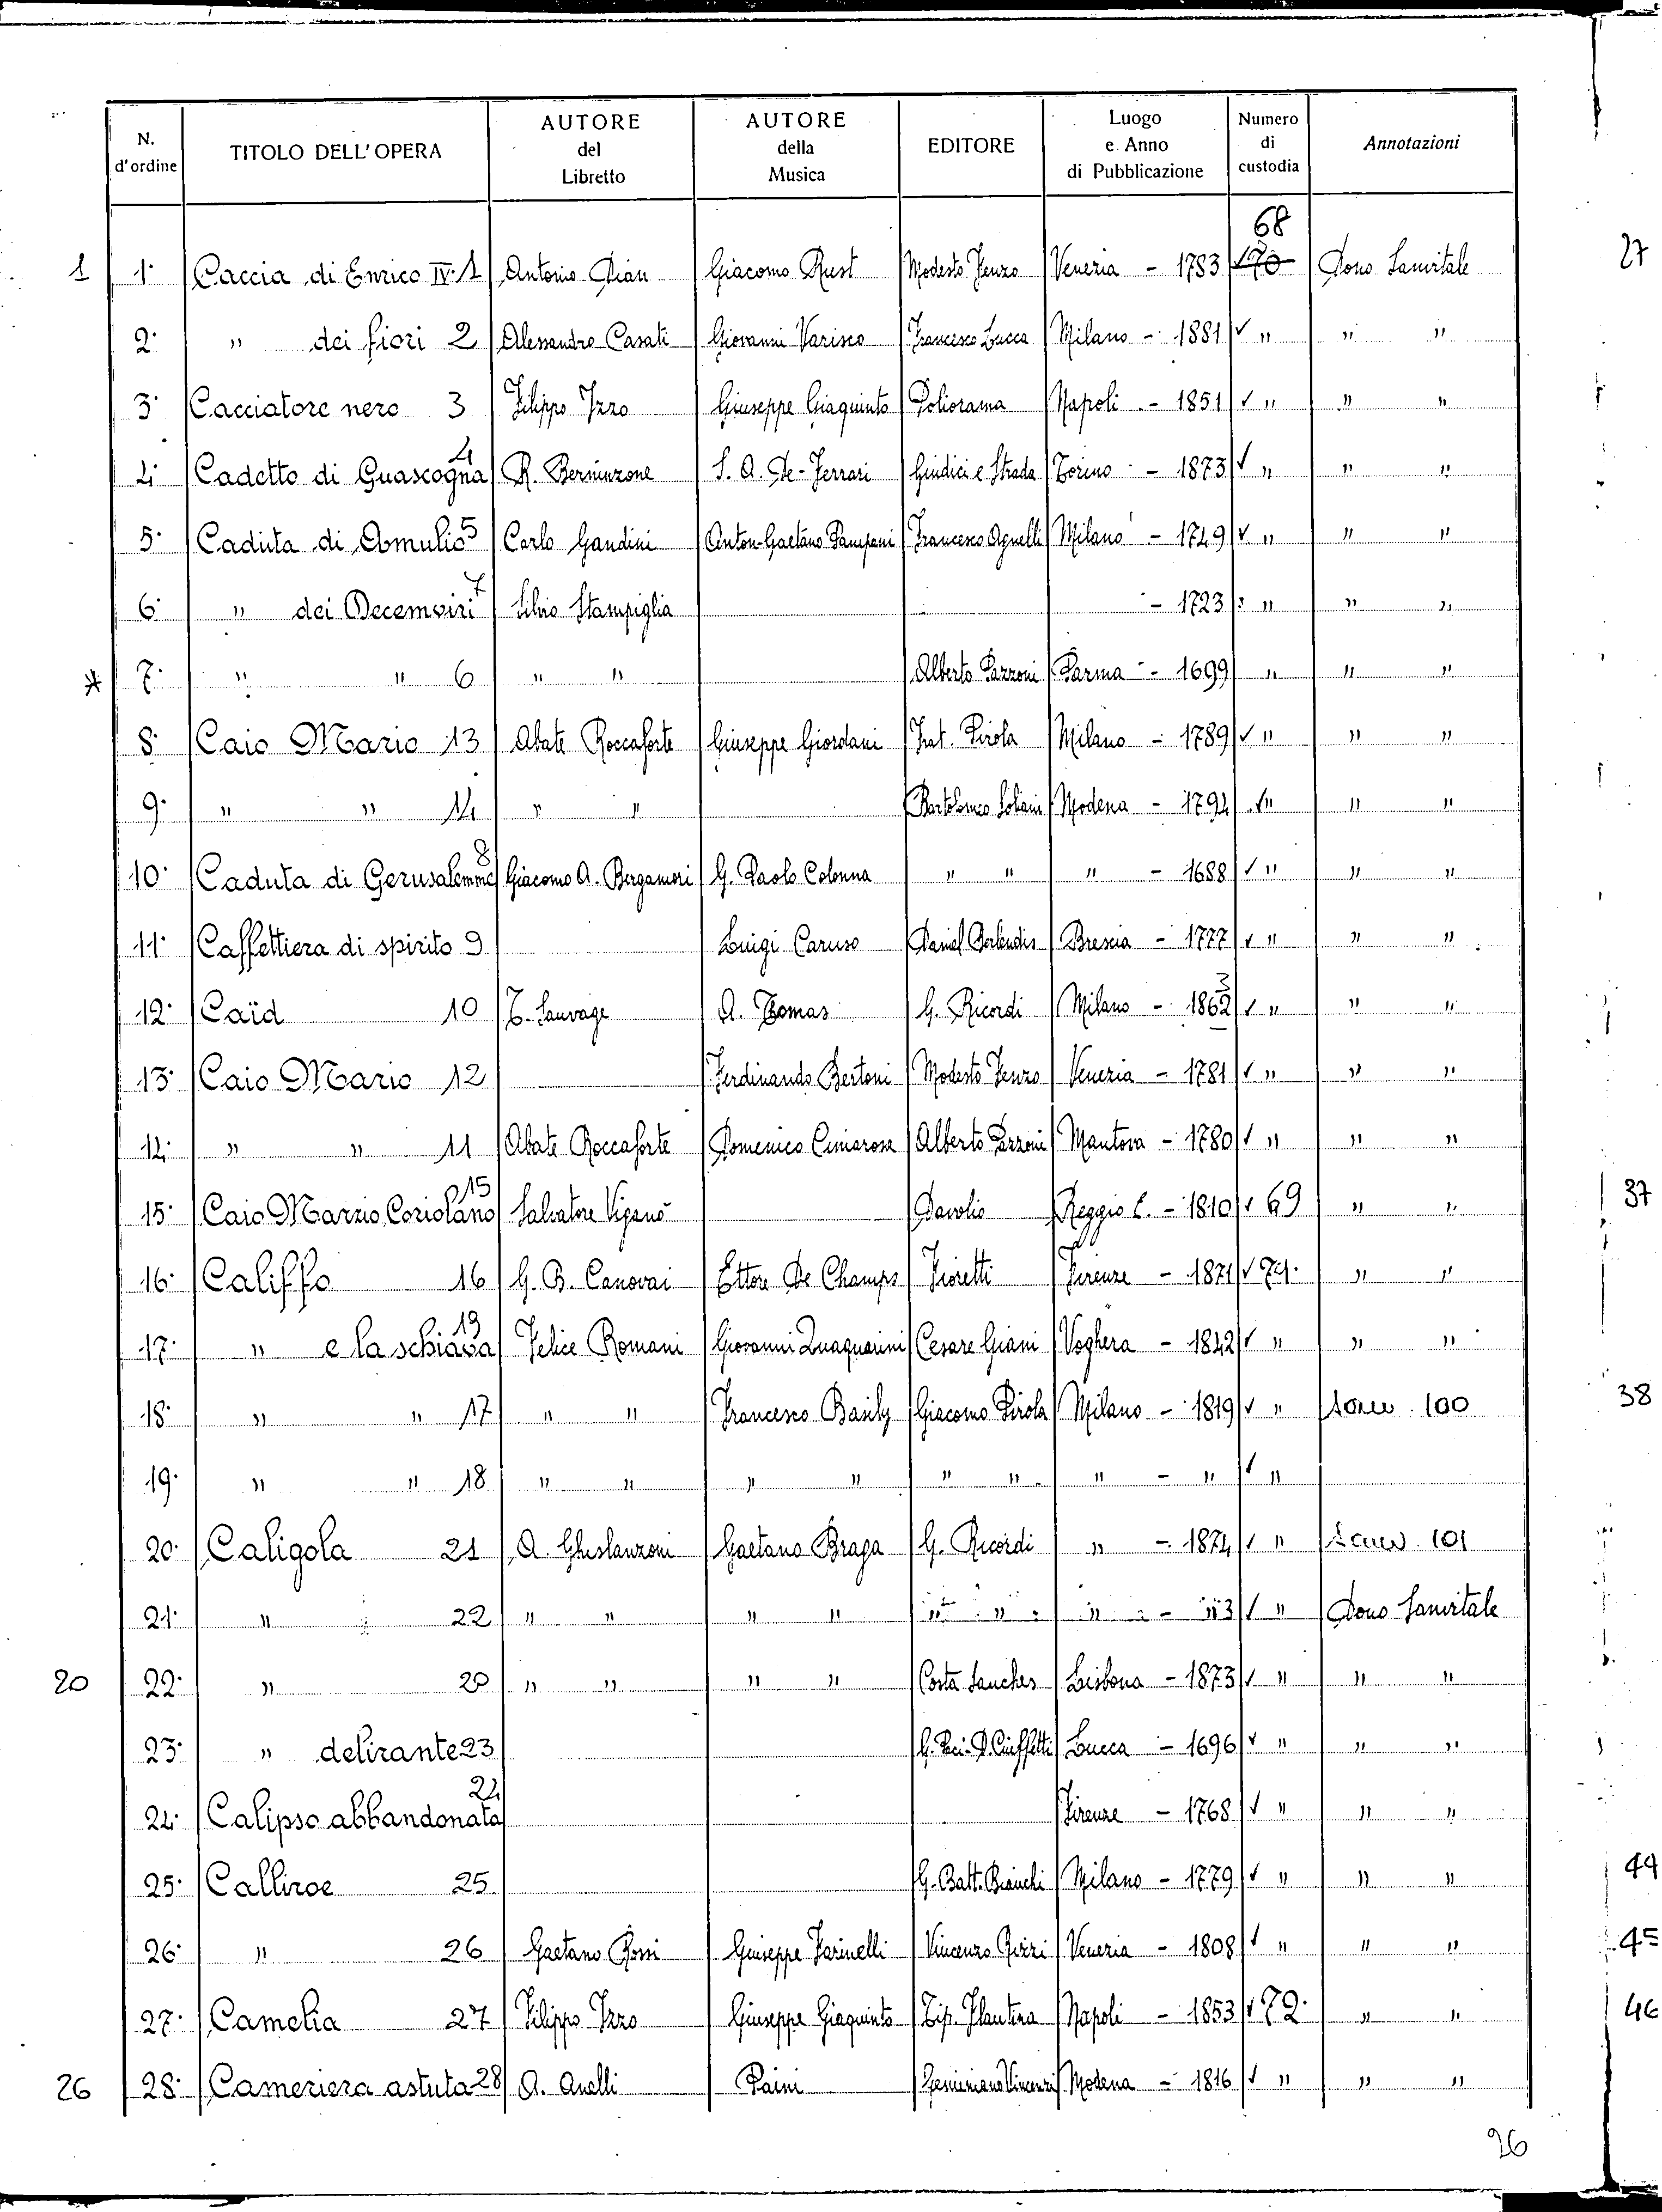 N. d'ordine | TITOLO DELL'OPERA | AUTORE del Libretto | AUTORE della Musica | EDITORE | Luogo e Anno di Pubblicazione | Numero di custodia | Annotazioni
68
1 1· Caccia di Enrico IV· 1 Antonio Dian Giacomo Rust Modesto Fenzo Venezia - 1783 √ 70 Dono Sanvitale 27
2· " dei fiori 2 Alessandro Casati Giovanni Varisco Francesco Lucca Milano - 1881 √ " " "
3· Cacciatore nero 3 Filippo Izzo Giuseppe Giaquinto Poliorama Napoli - 1851 √ " " "
4· Cadetto di Guascogna 4 R. Berninzone S. A. De-Ferrari Giudici e Strada Torino - 1873 √ " " "
5· Caduta di Amulio 5 Carlo Gandini Anton-Gaetano Pampani Francesco Agnelli Milano - 1749 √ " " "
6· " dei Decemviri 7 Silvio Stampiglia - 1723 " " "
* 7· " " 6 " " Alberto Pazzoni Parma - 1699 " " "
8· Caio Mario 13 Abate Roccaforte Giuseppe Giordani Frat. Pirola Milano - 1789 √ " " "
9· " " 14 " " Bartolomeo Soliani Modena - 1794 √ " " "
10· Caduta di Gerusalemme 8 Giacomo A. Bergamori G. Paolo Colonna " " " - 1688 √ " " "
11· Caffettiera di spirito 9 Luigi Caruso Daniel Berlendis Brescia - 1777 √ " " "
12· Caïd 10 T. Sauvage A. Thomas G. Ricordi Milano - 1862 3 √ " " "
13· Caio Mario 12 Ferdinando Bertoni Modesto Fenzo Venezia - 1781 √ " " "
14· " " 11 Abate Roccaforte Domenico Cimarosa Alberto Pazzoni Mantova - 1780 √ " " "
15· Caio Marzio Coriolano 15 Salvatore Viganò Davolio Reggio E. - 1810 √ 69 " " 37
16· Califfo 16 G. B. Canovai Ettore De Champs Fioretti Firenze - 1871 √ 71· " "
17· " e la schiava 19 Felice Romani Giovanni Quaquarini Cesare Giani Voghera - 1842 √ " " "
18· " " 17 " " Francesco Basily Giacomo Pirola Milano - 1819 √ " 100 38
19· " " 18 " " " " " " " - " √ "
20· Caligola 21 A. Ghislanzoni Gaetano Braga G. Ricordi " - 1874 √ " 101
21· " 22 " " " " " " " - " 3 √ " Dono Sanvitale
20 22· " 20 " " " " Costa Sanches Lisbona - 1873 √ " " "
23· " delirante 23 Lucca - 1696 √ " " "
24· Calipso abbandonata 24 Firenze - 1768 √ " " "
25· Calliroe 25 G. Batt. Bianchi Milano - 1779 √ " " " 44
26· " 26 Gaetano Rossi Giuseppe Farinelli Vincenzo Rizzi Venezia - 1808 √ " " " 45
27· Camelia 27 Filippo Izzo Giuseppe Giaquinto Tip. Plautina Napoli - 1853 √ 72· " " 46
26 28· Cameriera astuta 28 A. Anelli Paini Geminiano Vincenzi Modena - 1816 √ " " "
26